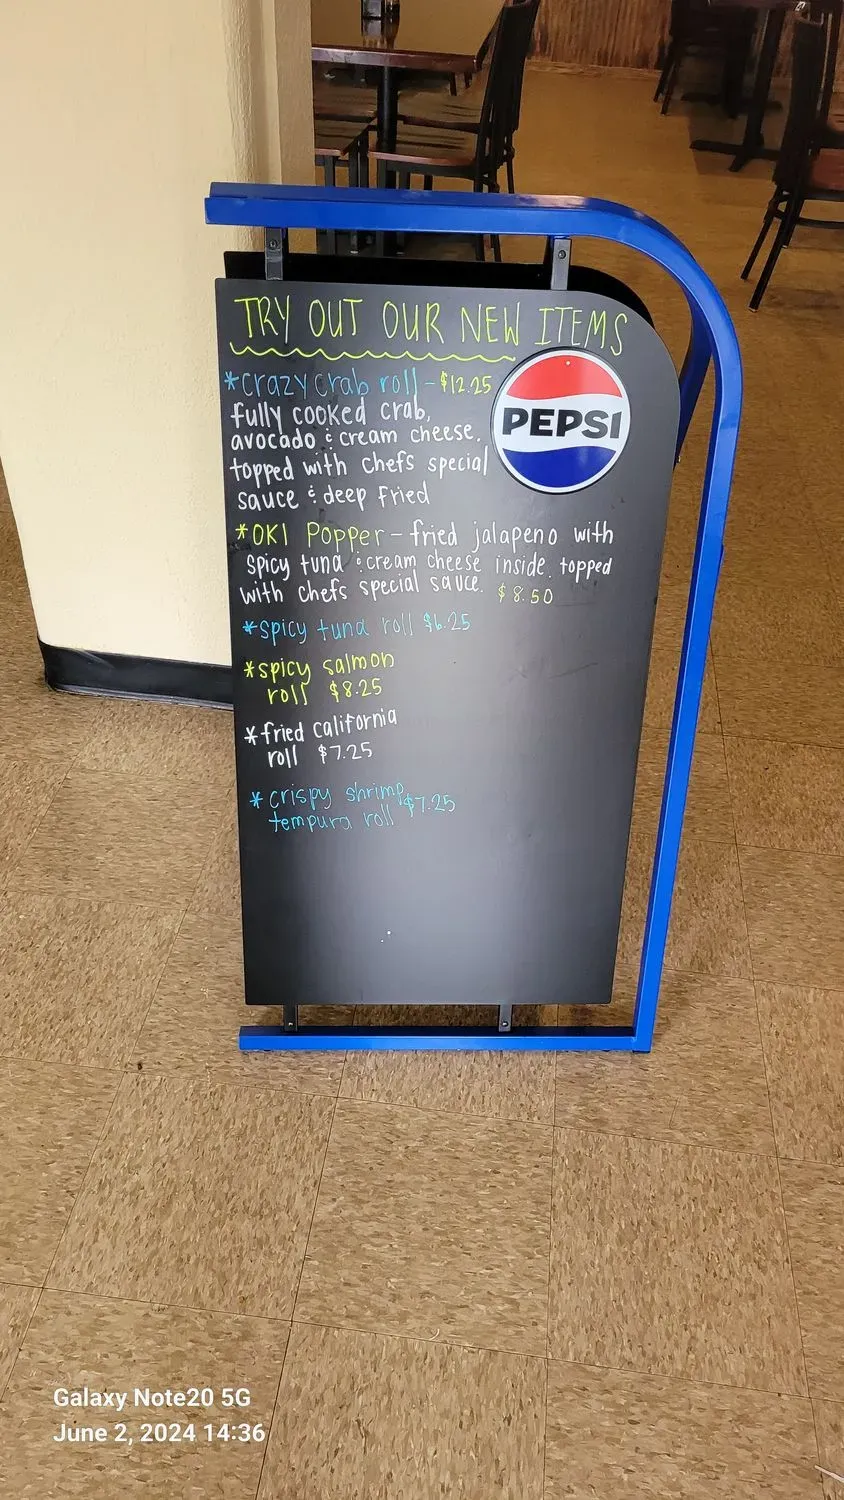 TRY OUT OUR NEW ITEMS
*crazy crab roll - $12.25
PEPSI
fully cooked crab,
avocado & cream cheese.
topped with chefs special
sauce & deep fried
*OKI Popper - fried jalapeno with
spicy tuna & cream cheese inside. topped
with chefs special sauce. $8.50
*spicy tuna roll $6.25
*spicy salmon
roll $8.25
*fried california
roll $7.25
*crispy shrimp $7.25
tempura roll
Galaxy Note20 5G
June 2, 2024 14:36